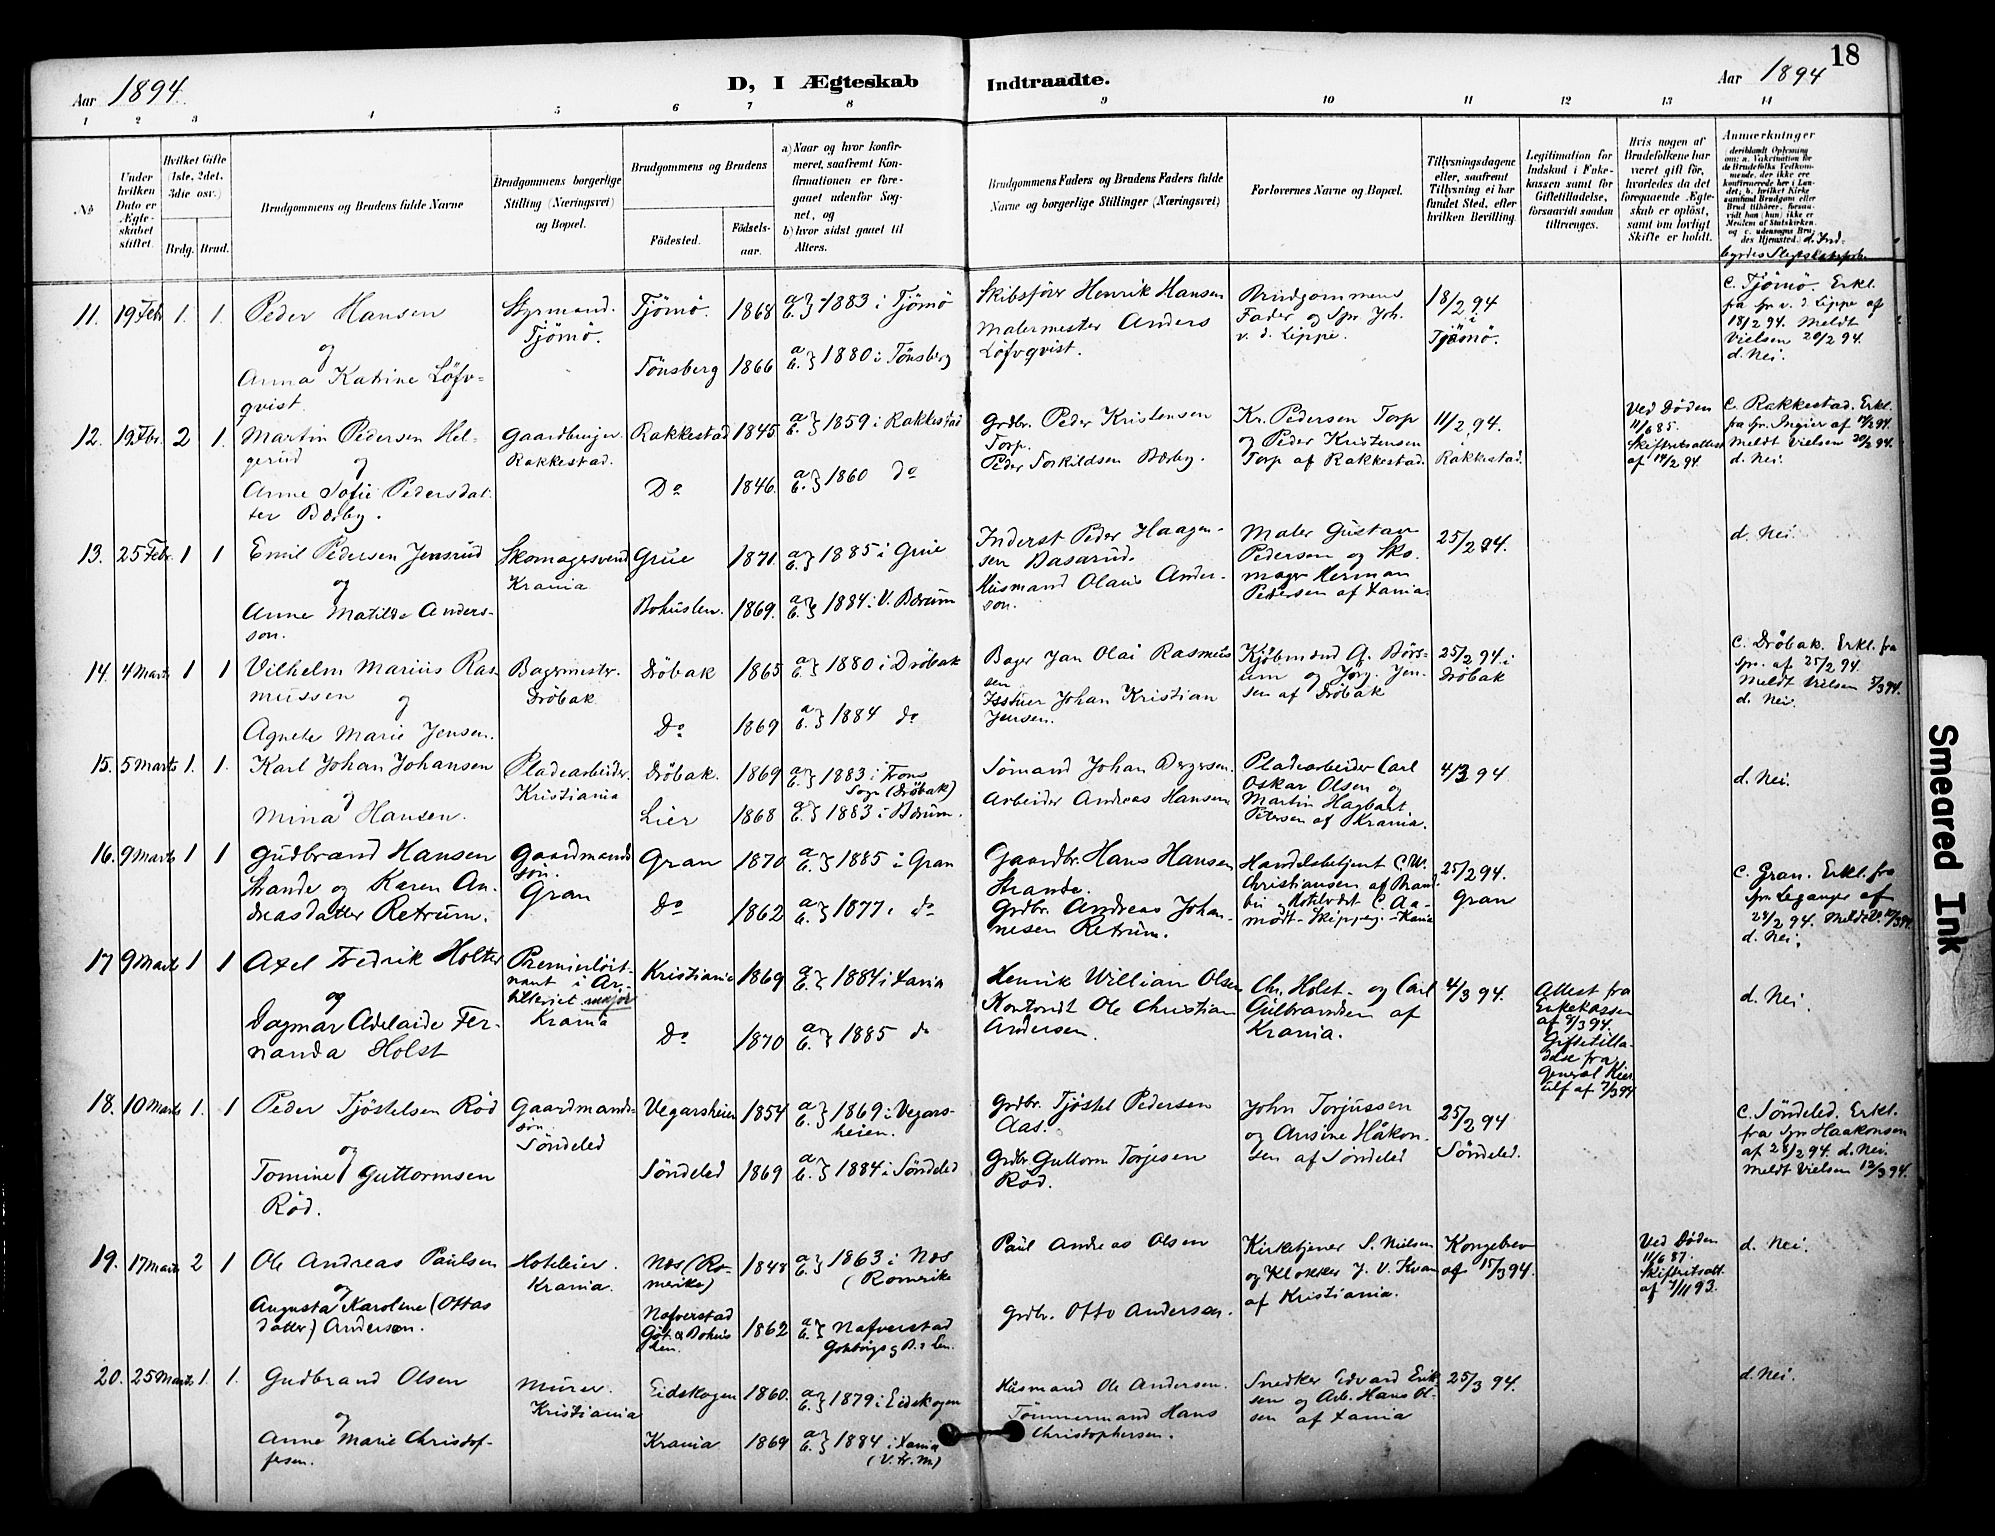 18
Aar 1894.
D, I Ægteskab Indtraadte.
Aar 1894
1 2 3 4 5 6 7 8 9 10 11 12 13 14
No
Under hvilken Dato er Ægteskabet stiftet.
Hvilket Gifte (1ste, 2det, 3die osv.)
Brdg. Brud.
Brudgommens og Brudens fulde Navne
Brudgommens borgerlige Stilling (Næringsvei) og Bopæl.
Brudgommens og Brudens
Födested.
Födselsaar.
a) Naar og hvor konfirmeret, saafremt Konfirmationen er foregaaet udenfor Sognet, og
b) hvor sidst gaaet til Alters.
Brudgommens Faders og Brudens Faders fulde Navne og borgerlige Stillinger (Næringsvei)
Forlovernes Navne og Bopæl.
Tillysningsdagene eller, saafremt Tillysning ei har fundet Sted, efter hvilken Bevilling.
Legitimation for Indskud i Enkekassen samt for Giftetilladelse, forsaavidt saadan tiltrænges.
Hvis nogen af Brudefolkene har været gift för, hvorledes da det foregaaende Ægteskab er oplöst, samt om lovligt Skifte er holdt.
Anmærkninger
11. 19 Febr 1. 1. Peder Hansen
og
Anna Katrine Löfvqvist.
Styrmand. Tjömö.
Tjömö. 1868 a b } 1883 i Tjömö
Tönsberg 1866 a b } 1880 i Tönsberg
Skibsförer Henrik Hansen
Malermester Anders Löfvqvist.
Brudgommens Fader og Spr Joh. v. d. Lippe.
18/2 94 i Tjömö.
C. Tjömö. Erkl. fra spr v. d. Lippe af 18/2 94. Meldt Vielsen 20/2 94. d. Nei.
12. 19 Fbr. 2 1. Martin Pedersen Helgerud
og
Anne Sofie Pedersdatter Bærby.
Gaardbruger. Rakkestad.
Rakkestad 1845 a b } 1859 i Rakkestad
Do 1846. a b } 1860 do
Grdbr. Peder Kristensen Torp.
Peder Torkildsen Bærby.
Kr. Pedersen Torp og Peder Kristensen Torp af Rakkestad.
11/2 94. i Rakkestad.
Ved Döden 11/6 85. Skifteretsattest af 14/2 94.
C. Rakkestad. Erkl. fra spr. Ingier af 14/2 94. Meldt Vielsen 20/2 94. d. Nei.
13. 25 Febr. 1 1 Emil Pedersen Jensrud
og
Anne Matilde Andersson.
Skomagersvend Krania
Grue 1871. a b } 1885 i Grue
Bohuslen. 1869. a b } 1884 i V. Bærum
Inderst Peder Haagensen Basarud.
Husmand Olaus Anderson.
Maler Gustav Pedersen og Skomager Herman Pedersen af Xania.
25/2 94.
d. Nei.
14. 4 Marts 1 1 Vilhelm Marius Rasmussen
og
Agnete Marie Jensen.
Bagermester. Dröbak
Dröbak 1865 a b } 1880 i Dröbak
Do 1869 a b } 1884 do
Bager Jan Olai Rasmussen
Johan Kristian Jensen.
Kjöbmænd A. Börsum og Jörg. Jensen af Dröbak
25/2 94. i Dröbak
C. Dröbak. Erkl. fra spr. af 25/2 94. Meldt Vielsen 5/3 94. d. Nei.
15. 5 Marts 1. 1. Karl Johan Johansen
og
Mina Hansen.
Pladearbeider. Kristiania
Dröbak. 1869 a b } 1883 i Frons Sogn (Dröbak)
Lier 1868 a b } 1883 i Bærum.
Sömand Johan Bergersen.
Arbeider Andreas Hansen
Pladearbeider Carl Oskar Olsen og Martin Hagbart Petersen af Krania.
4/3 94.
d. Nei.
16. 9 Marts 1 1 Gudbrand Hansen Strande og Karen Andreasdatter Retrum.
Gaardmandssön. Gran
Gran 1870 a b } 1885 i Gran
Do 1862 a b } 1877 i do
Gaardbr. Hans Hansen Strande.
Grdbr. Andreas Johannesen Retrum.
Handelsbetjent C. W. Christiansen af Brandbu og C. Aamodt
25/2 94. Gran
C. Gran. Erkl. fra spr. Leganger af 28/2 94. Meldt V. 10/3 94. d. Nei.
17 9 Marts 1 1 Axel Fredrik Holter
og
Dagmar Adelaide Fernanda Holst
Premierlöitnant i Artilleriet major Krania
Kristiania 1869 a b } 1884 i Xania
Do 1870 a b } 1885 do
Henrik Willian Olsen
Ole Christian Andersen.
Chr. Holst og Carl Gulbrandsen af Krania.
4/3 94.
Attest fra Enkekassen af 8/3 94. Giftetilladelse fra General Kierulf af 7/3 94
d. Nei.
18. 10 Marts 1. 1 Peder Tjöstelsen Röd
og
Tomine Guttormsen Röd.
Gaardmandssön. Söndeled
Vegarsheien 1854 a b } 1869 i Vegarsheien.
Söndeled 1869 a b } 1884 i Söndeled
Grdbr. Tjöstel Pedersen Aas.
Grdbr Guttorm Torjesen Röd.
John Torjussen og Ansine Håkonsen af Söndeled
25/2 94 Söndeled.
C. Söndeled. Erkl. fra Spr Haakonsen af 28/2 94. d. Nei. Meldt Vielsen 12/3 94.
19. 17 Marts 2 1 Ole Andreas Paulsen
og
Augusta Karoline (Ottasdatter) Anderson.
Hoteleier. Krania.
Næs (Romerike) 1848 a b } 1863 i Næs (Romerike
Nafverstad Göt. & Bohus len. 1862 a b } Nafverstad Gotebrigs og B.s len.
Paul Andreas Olsen
Grdbr. Otto Anderson.
Kirketjener S. Nielsen og Klokker J. V. Kvam af Kristiania.
Kongebrev af 15/3 94.
Ved Döden 11/6 87. Skifteretsatt. af 7/11 93.
d. Nei.
20. 25 Marts 1. 1. Gudbrand Olsen
og
Anne Marie Christoffersen.
Murer. Kristiania
Eidskogen 1860. a b } 1879 i Eidskogen
Krania 1869 a b } 1884 i Xania (V. Fr. M.)
Husmand Ole Andersen.
Tömmermand Hans Christophersen.
Snedker Edvard Eriksen og Arb. Hans Olsen af Xania
25/3 94.
d. Nei.
Smeared Ink